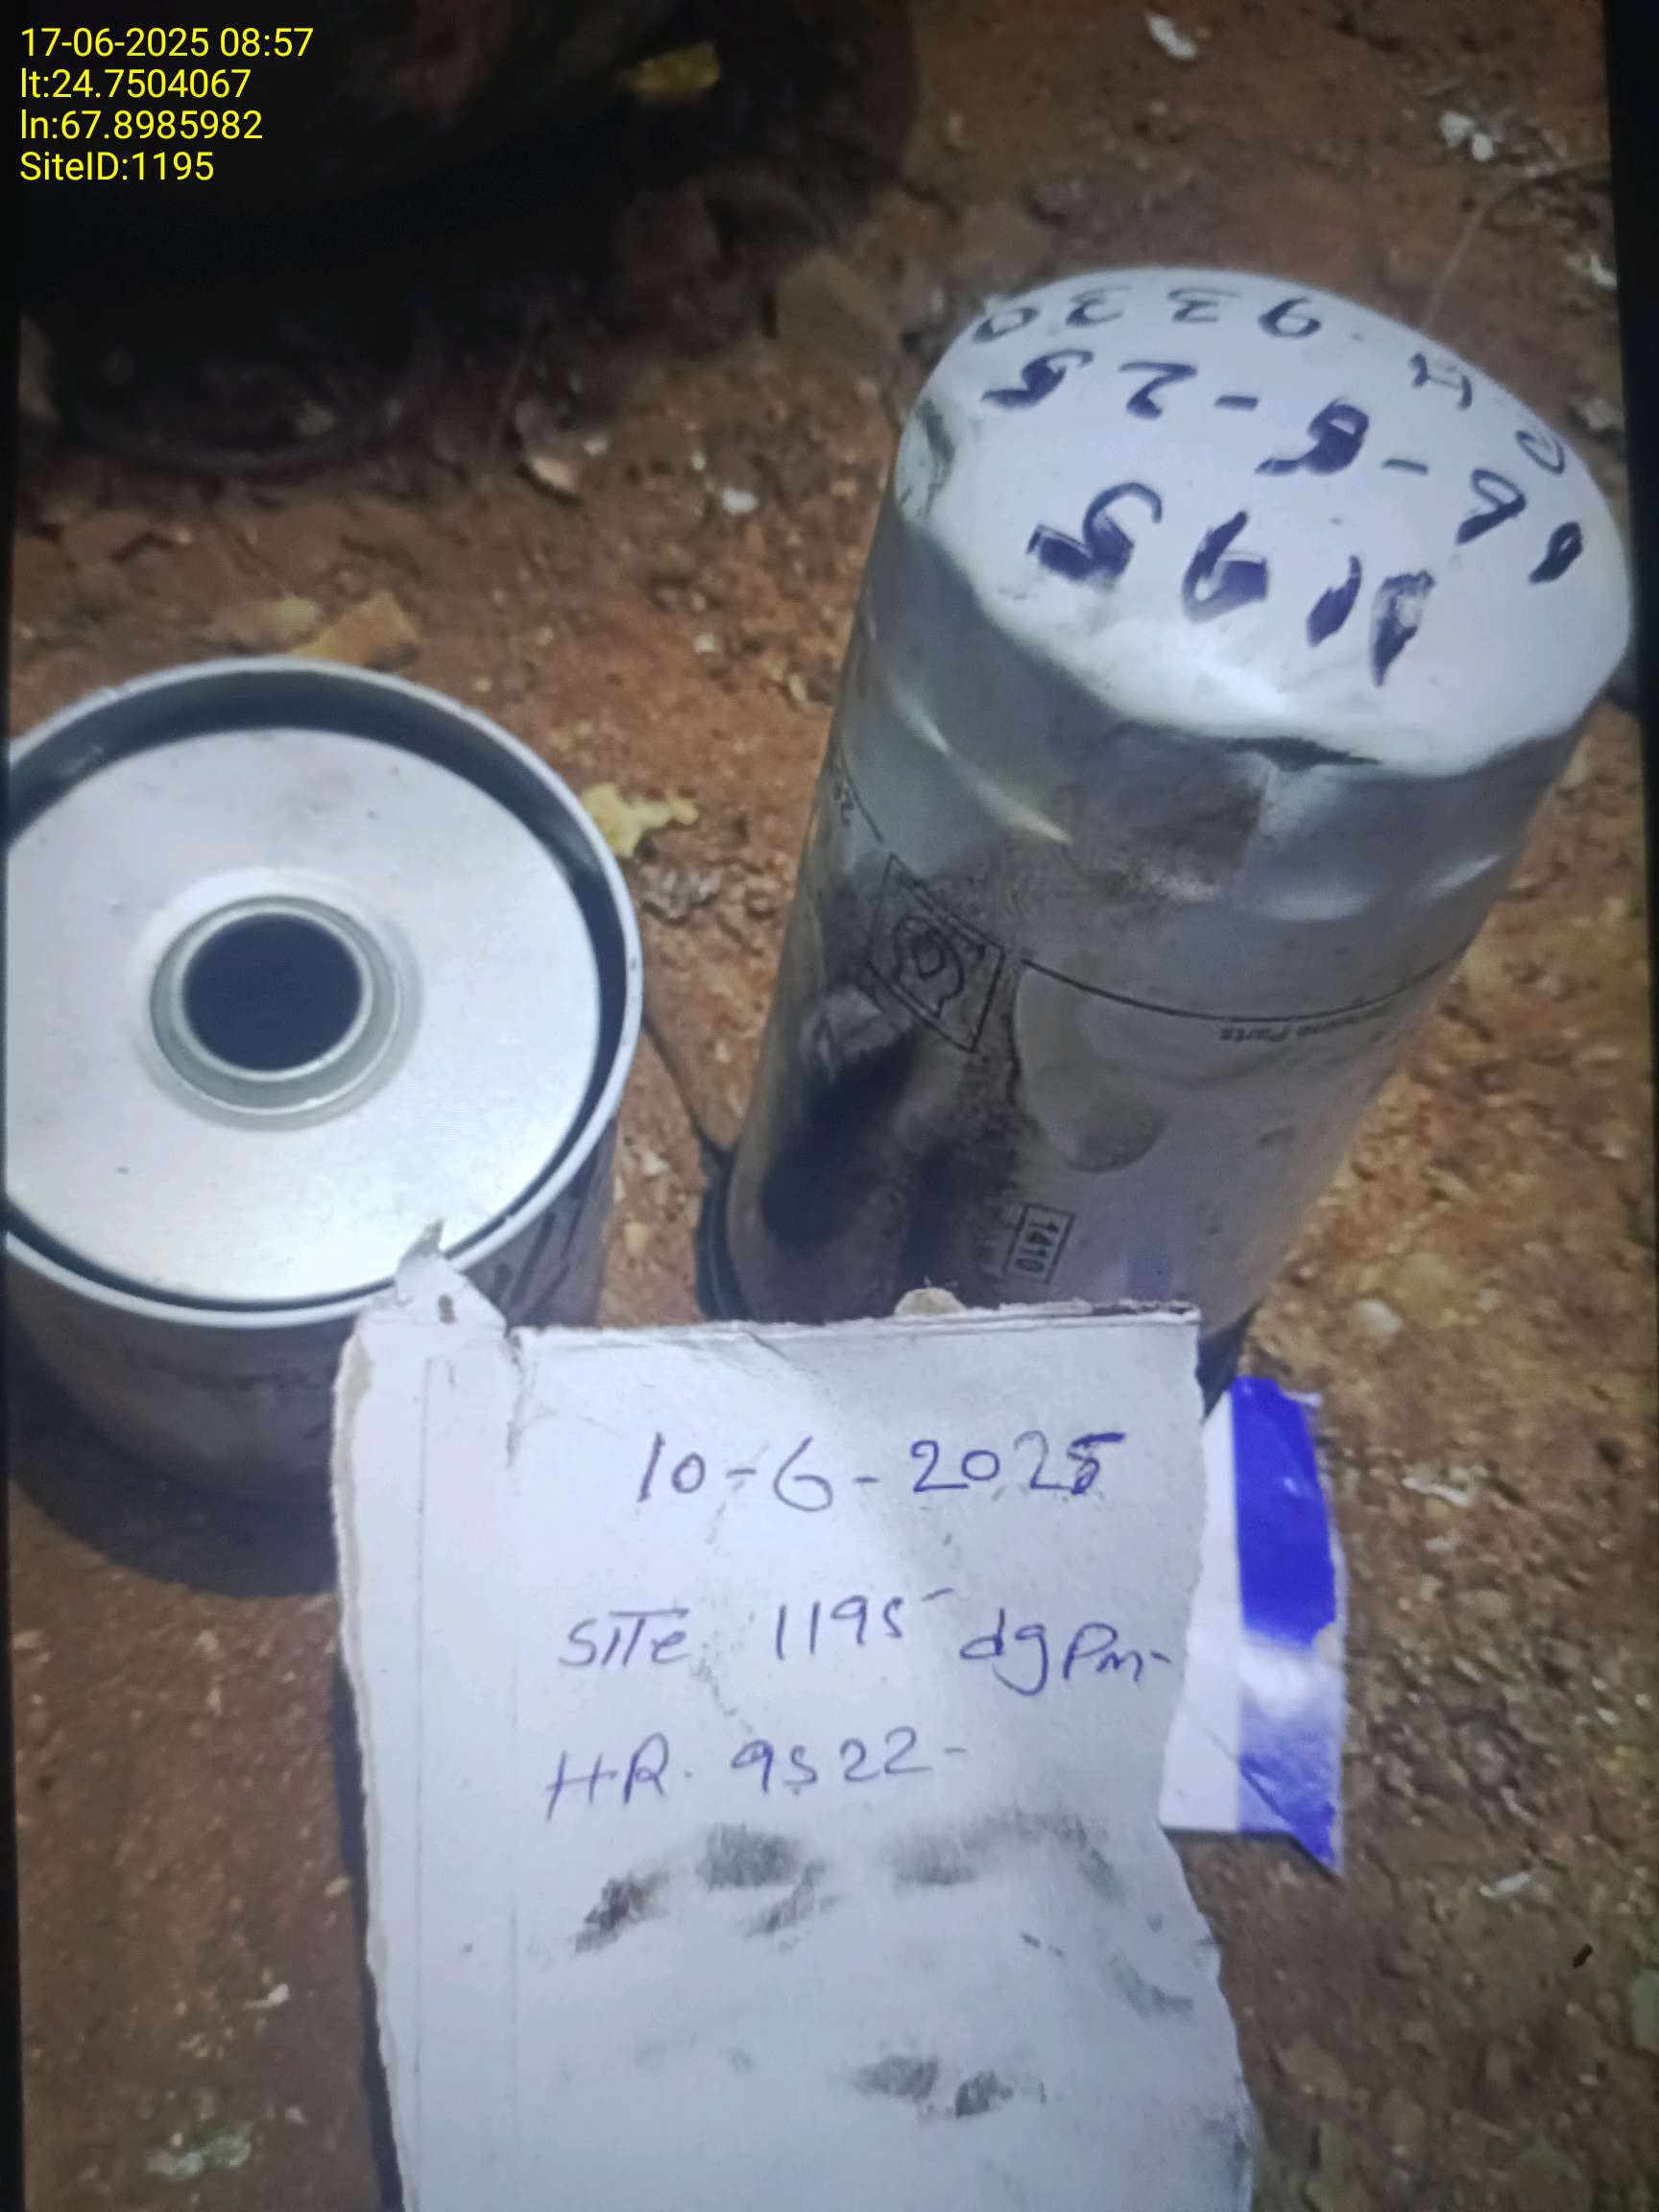 17-06-2025 08:57
lt:24.7504067
ln:67.8985982
SiteID:1195
1195
-25
1410
10-6-2025
SITe 1195 dg Pm-
HR. 9522-